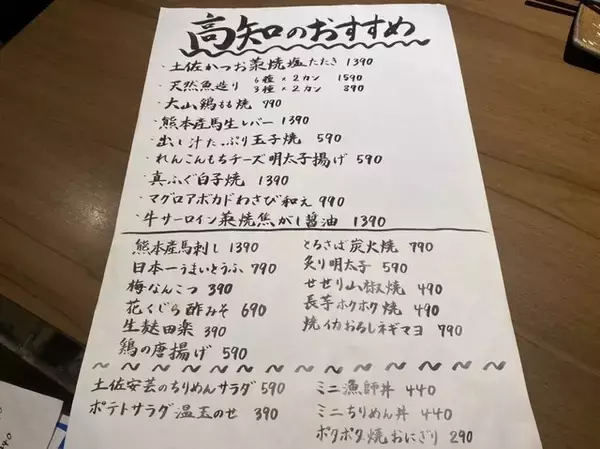 高知のおすすめ
・土佐かつお藁焼塩たたき 1390
・天然魚造り 6種×2カン 1590
3種×2カン 890
・大山鶏もも焼 790
・熊本産馬生レバー 1390
・出し汁たっぷり玉子焼 590
・れんこんもちチーズ明太子揚げ 590
・真ふぐ白子焼 1390
・マグロアボカドわさび和え 990
・牛サーロイン藁焼焦がし醤油 1390
熊本産馬刺し 1390
日本一うまいとうふ 790
梅なんこつ 390
花くじら酢みそ 690
生麩田楽 390
鶏の唐揚げ 590
とろさば炭火焼 790
炙り明太子 590
せせり山椒焼 490
長芋ホクホク焼 490
焼イカおろしネギマヨ 790
土佐安芸のちりめんサラダ 590
ポテトサラダ温玉のせ 390
ミニ漁師丼 440
ミニちりめん丼 440
ポタポタ焼おにぎり 290